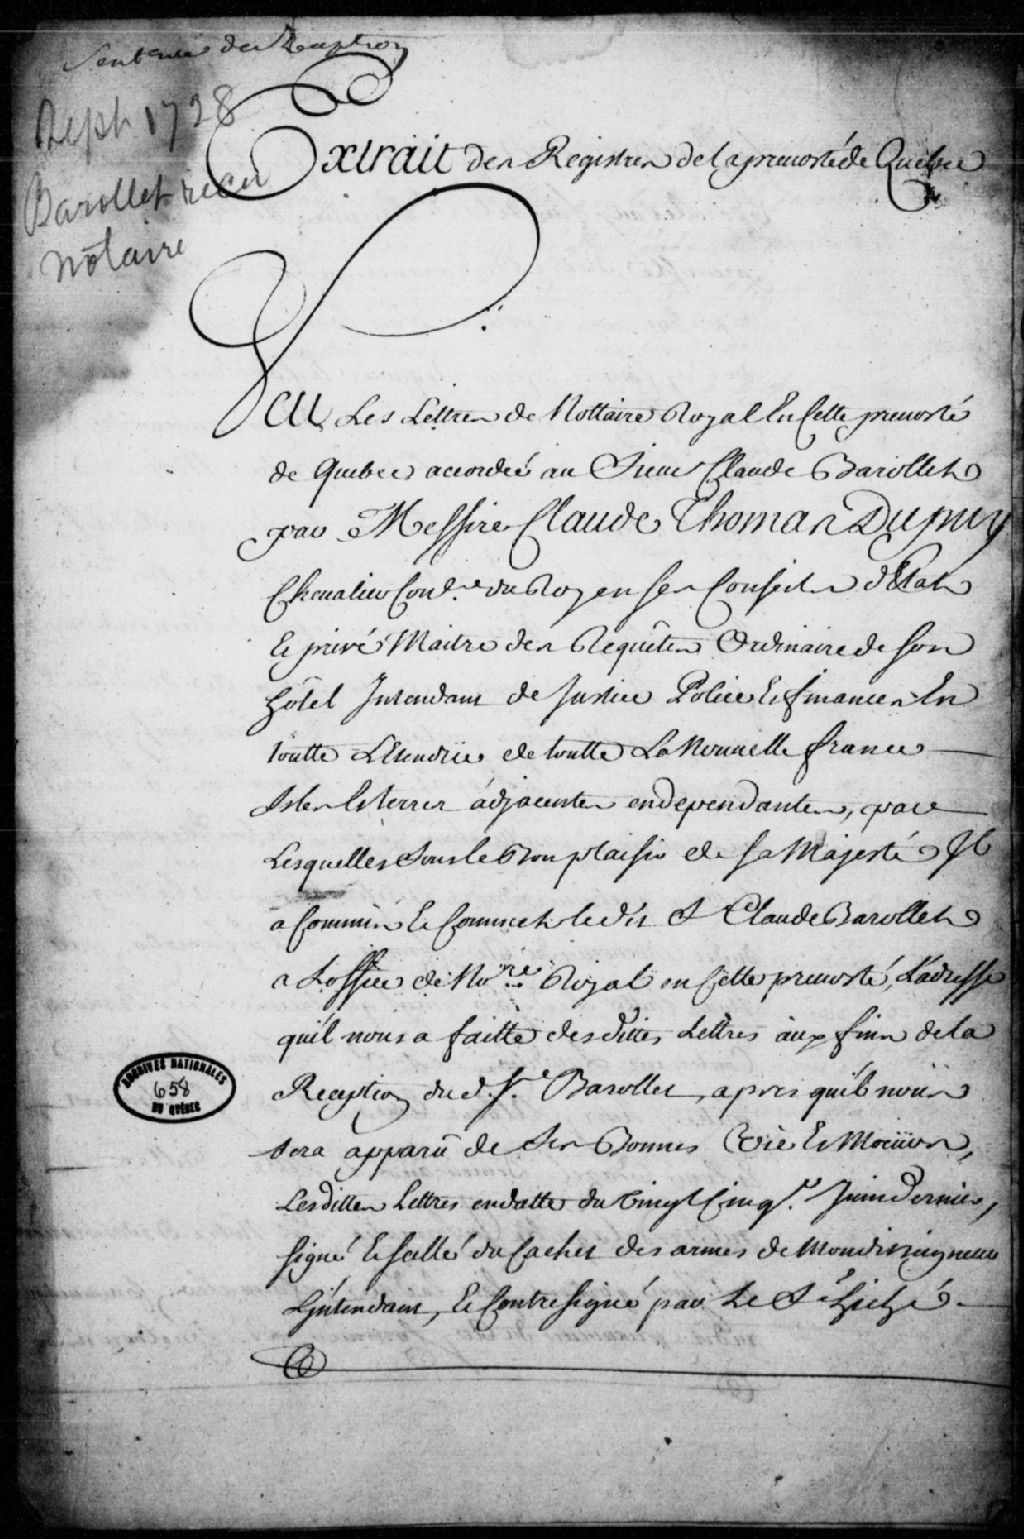 Sentence de Reception
Sept 1728
Barollet recu
Notaire
Extrait des Registres de la prevosté de Quebec
Veu Les Lettres de Nottaire Royal En Cette prevosté
de Quebec accordéé au Sieur Claude Barollet
par Messire Claude Thomas Dupuy
Chevalier Con.er du Roy en ses Conseils d'Etat
Et privé Maitre des Requêtes Ordinaire de son
hôtel Intendant de Justice Police Et finances En
toutte L'Etendüe de toutte La Nouvelle france
Isles Et terres adjacentes en dependantes, par
Lesquelles Sous le Bon plaisir de Sa Majesté Il
a Commis Et Commet le dit S Claude Barollet
a L'office de No.re Royal en Cette prevosté, L'adresse
qu'il nous a faitte desdittes Lettres aux fins de la
Reception du d. S.r Barollet, apres qu'il nous
sera apparü de Ses Bonnes Vie Et Moeurs,
Lesdittes Lettres en datte du Vingt Cinq.e Juin dernier,
signé Et scellé du Cachet des armes de Mondit seigneur
L'jntendant, Et Contresigné par Le S.r
ARCHIVES NATIONALES
658
DU QUÉBEC